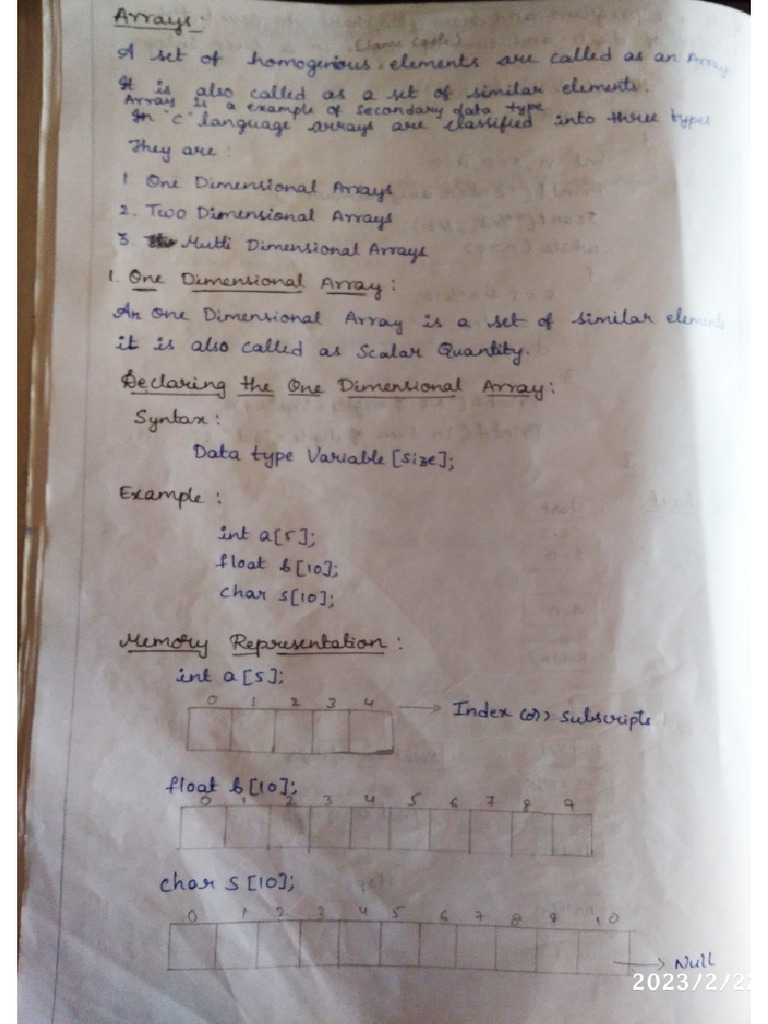 Arrays:
(same code)
A set of homogenious elements are called as an Array
It is also called as a set of similar elements.
Array is a example of secondary data type
In 'C' language arrays are classified into three types
They are:
1 One Dimensional Arrays
2. Two Dimensional Arrays
3 Multi Dimensional Arrays
1. One Dimensional Array:
An One Dimensional Array is a set of similar elements
it is also called as Scalar Quantity.
Declaring the One Dimensional Array:
Syntax:
Data type Variable [size];
Example:
int a[5];
float b[10];
char s[10];
Memory Representation:
int a[5];
0 1 2 3 4
Index (or) subscripts
float b[10];
0 1 2 3 4 5 6 7 8 9
char S[10];
0 1 2 3 4 5 6 7 8 9 10
Null
2023/2/22